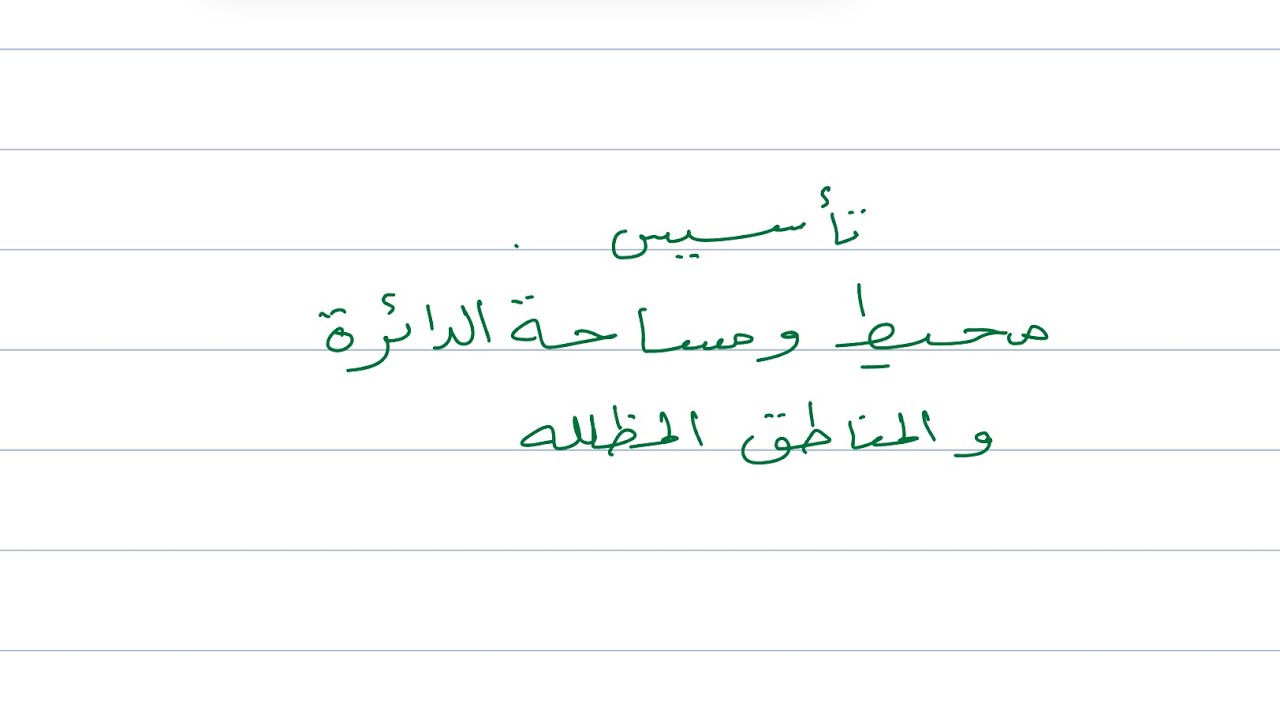 تأسييس
محيط ومساحة الدائرة
و المناطق المظلله